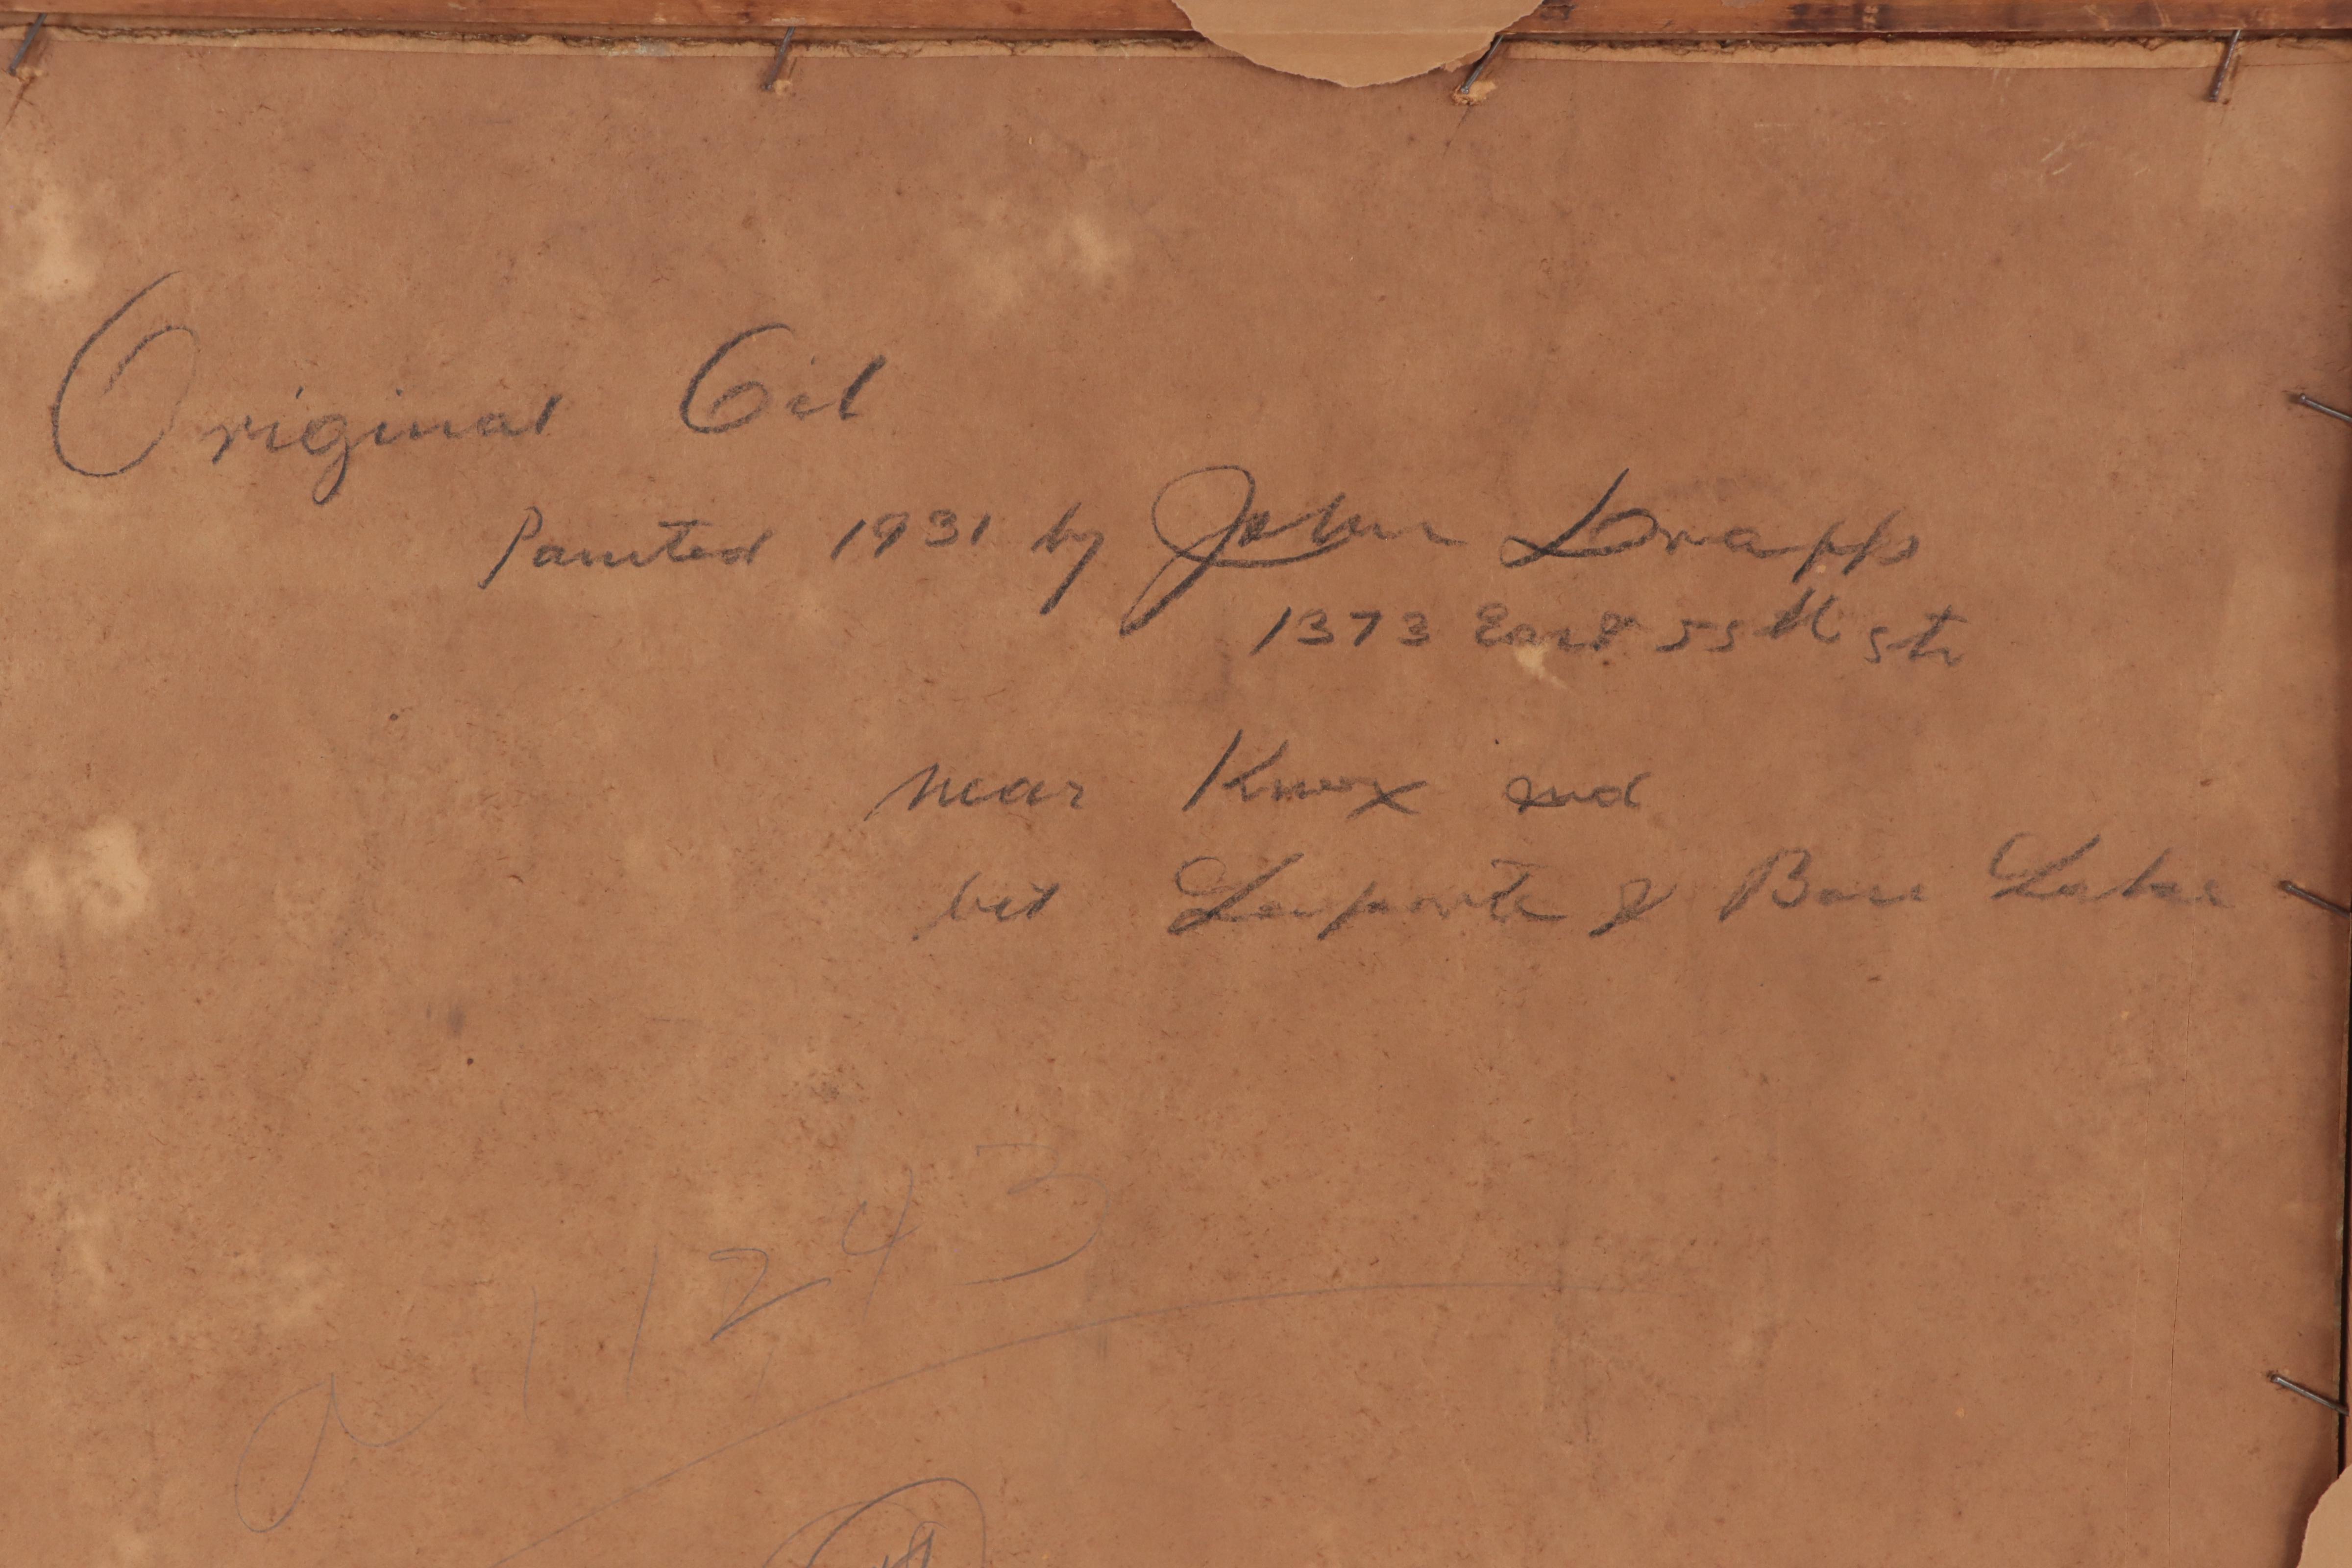 Original Oil
Painted 1931 by John Drapp
1373 East 55th St
near Knox Ind
bet Laporte & Bass Lake
a 11243